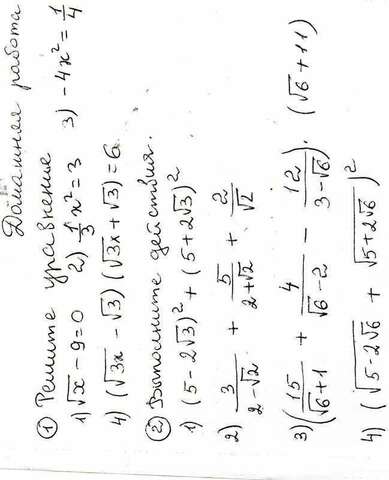 Домашняя работа
① Решите уравнение
1) √x - 9 = 0 2) 1/3 x² = 3 3) - 4x² = 1/4
4) (√3x - √3) (√3x + √3) = 6
② Выполните действия.
1) (5 - 2√3)² + (5 + 2√3)²
2) 3/(2-√2) + 5/(2+√2) + 2/√2
3) (15/(√6+1) + 4/(√6-2) - 12/(3-√6)) · (√6 + 11)
4) (√(5-2√6) + √(5+2√6))²